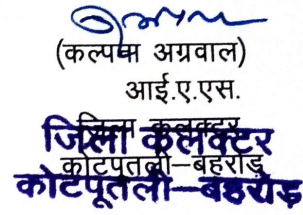 (कल्पना अग्रवाल)
आई.ए.एस.
जिला कलक्टर
कोटपूतली–बहरोड़
जिला कलेक्टर
कोटपूतली–बहरोड़